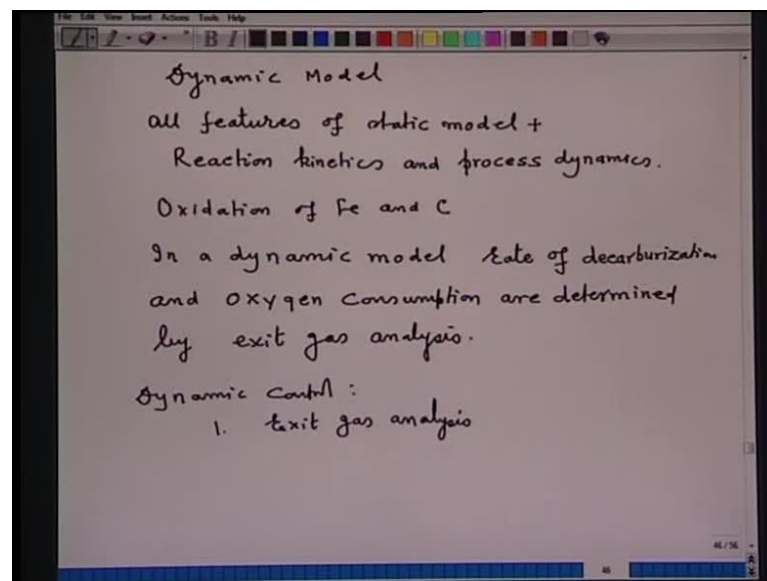 File Edit View Insert Actions Tools Help
B I
Dynamic Model
all features of static model +
Reaction kinetics and process dynamics.
Oxidation of Fe and C
In a dynamic model rate of decarburization
and oxygen consumption are determined
by exit gas analysis.
Dynamic Control :
1. Exit gas analysis
46/56
46